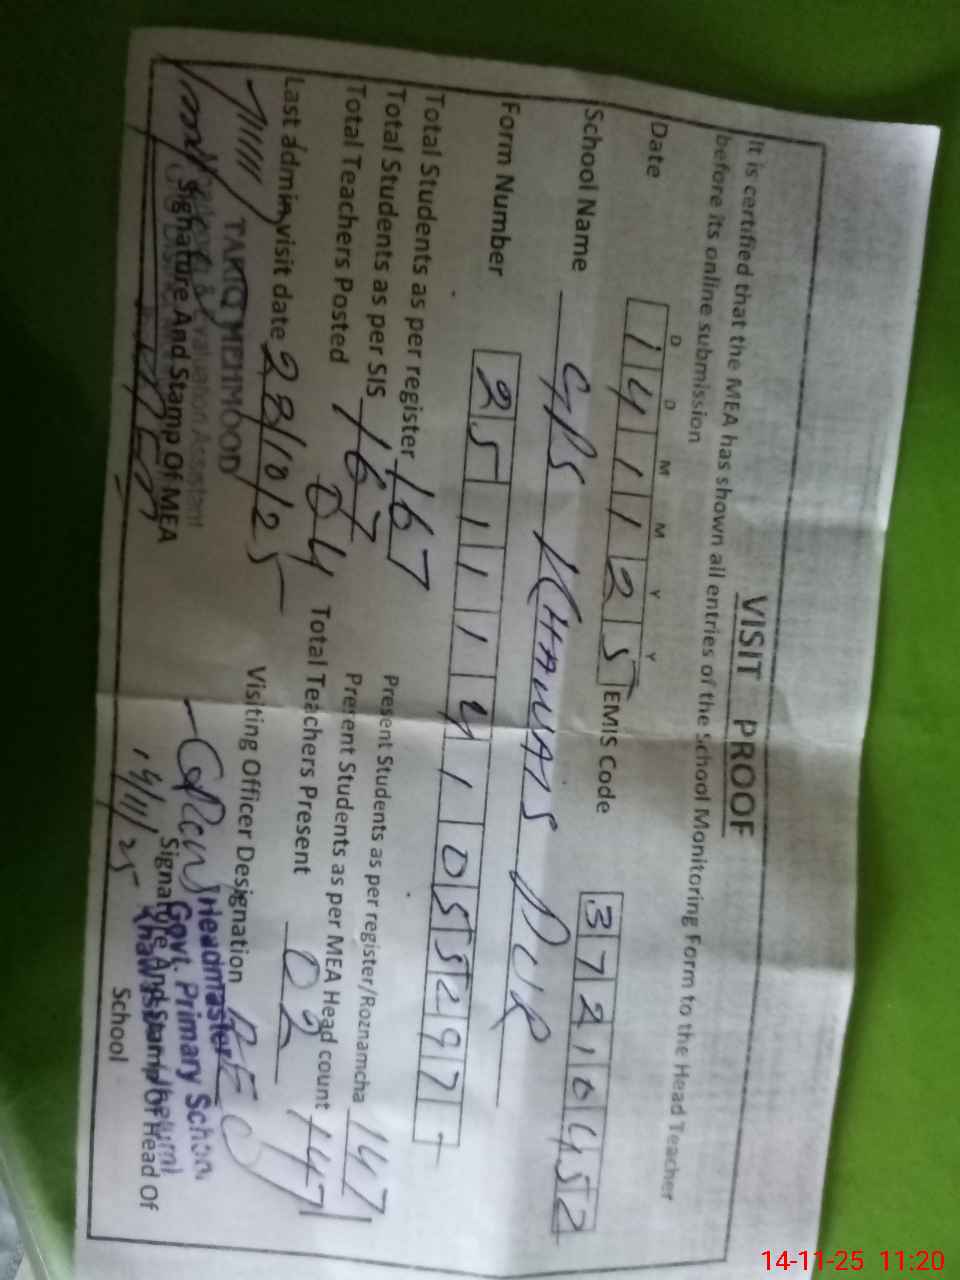 VISIT PROOF
It is certified that the MEA has shown all entries of the School Monitoring Form to the Head Teacher
before its online submission
D D M M Y Y
Date 1 4 1 1 2 5 EMIS Code 3 7 2 1 0 4 5 2
School Name GPS KHAWAS PUR
Form Number 2 5 1 1 1 4 1 0 5 5 2 9 7 -
Total Students as per register 167 Present Students as per register/Roznamcha 147
Total Students as per SIS 167 Present Students as per MEA Head count 147
Total Teachers Posted 04 Total Teachers Present 02
Last admin visit date 28/10/25 Visiting Officer Designation
TARIQ MEHMOOD
Signature And Stamp Of MEA
14/11/25
Headmaster
Govt. Primary School
Signature And Stamp Of Head Of
School
14-11-25 11:20